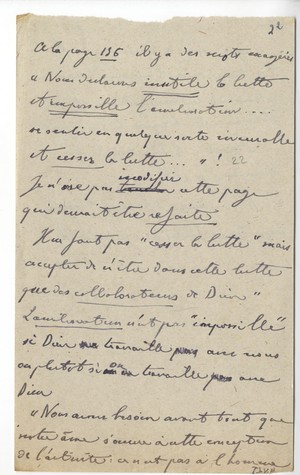 22
A la page 136 il y a des
"Nous déclarons inutile la lutte
et impossible l'amélioration....
se sentir en quelque sorte invulnérable
et cessez la lutte... " ! 22
modifier
Je n'ose pas cette page
qui devrait être refaite
Il ne faut pas "cesser la lutte" mais
accepter de n'être dans cette lutte
que des collaborateurs de Dieu"
L'amélioration n'est pas "impossible"
si Dieu travaille avec nous
ou plutôt si on travaille avec
Dieu
"Nous avons besoin avant tout que
notre âme s'ouvre à cette conception
de l'activité: ce n'est pas à l'homme